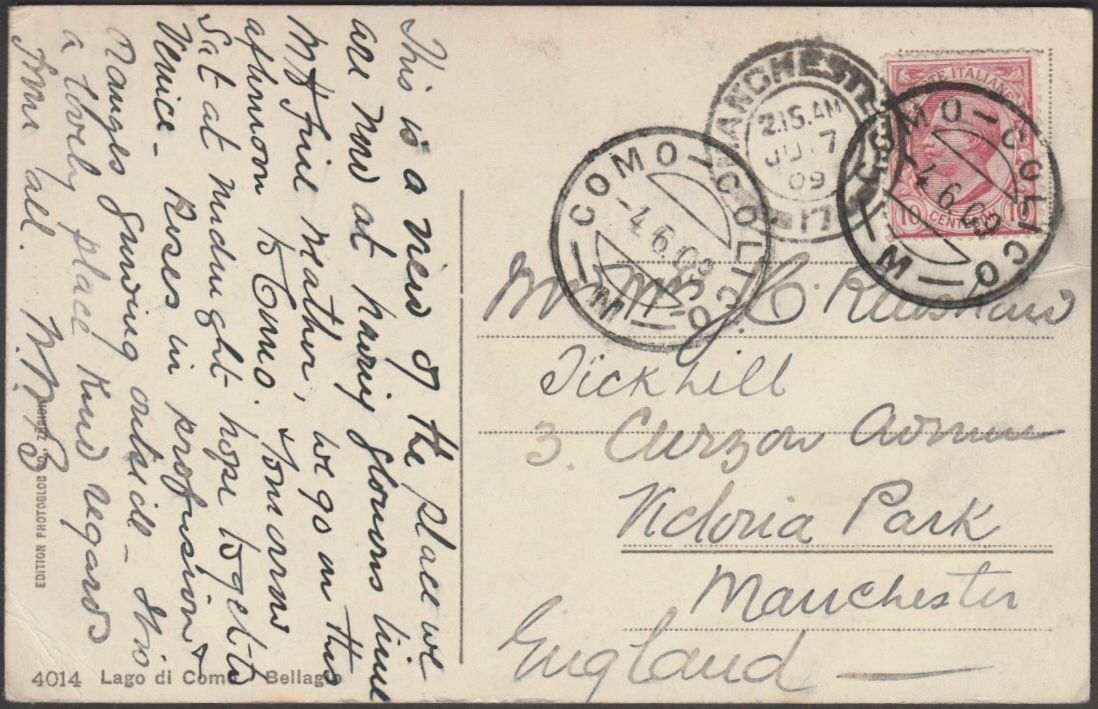 This is a view of the place we
are now at having glorious time
with fine weather, we go on this
afternoon to Como. & tomorrow
Sat at midnught hope to get to
Venice - Roses in profusion &
oranges growing outside - this
a lovely place Kind regards
from all.
EDITION PHOTOGLOB
4014 Lago di Como Bellagio
MANCHESTER
2.15.AM
7
09
17
COMO-COLICO
-4.6.09
M
POSTE ITALIANE
10 CENTESIMI 10
COMO-COLICO
-4.6.09
M
Mrs C. Renshaw
Tickhill
3. Curzon Avenue
Victoria Park
Manchester
England